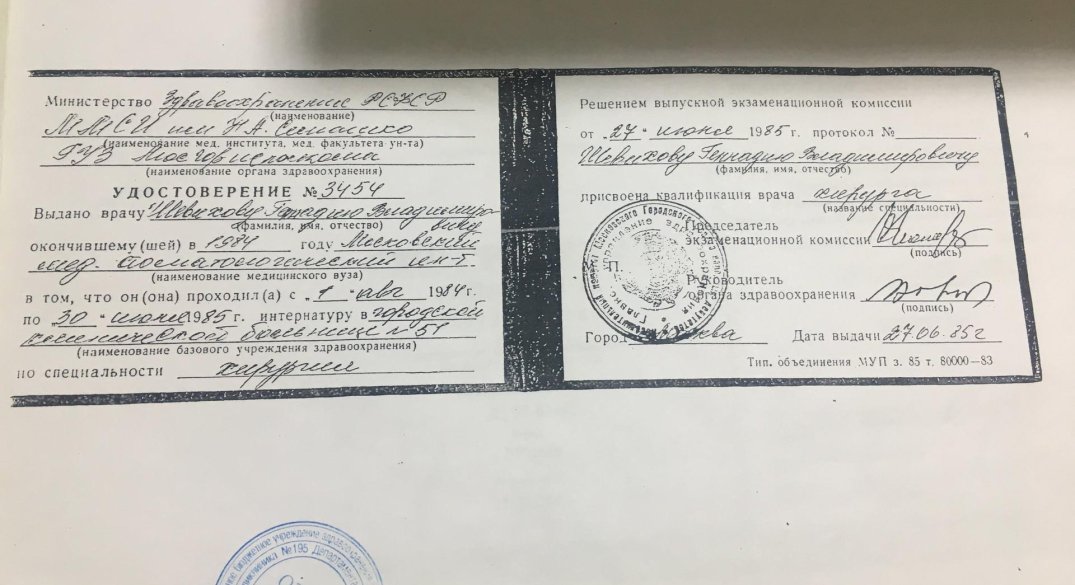 Министерство Здравоохранение РСФСР
(наименование)
ММСИ им Н.А. Семашко
(наименование мед. института, мед. факультета ун-та)
ГУЗ Мосгорисполкома
(наименование органа здравоохранения)
УДОСТОВЕРЕНИЕ № 3454
Выдано врачу Шевихову Геннадию Владимиро
вичу
(фамилия, имя, отчество)
окончившему (шей) в 1984 году Московский
мед. стоматологический ин-т
(наименование медицинского вуза)
в том, что он (она) проходил (а) с „1“ авг 1984 г.
по „30“ июня 1985 г. интернатуру в городской
клинической больнице № 51
(наименование базового учреждения здравоохранения)
по специальности хирургии
Решением выпускной экзаменационной комиссии
от „27“ июня 1985 г. протокол №
Шевихову Геннадию Владимировичу
(фамилия, имя, отчество)
присвоена квалификация врача хирурга
(название специальности)
Председатель
экзаменационной комиссии
(подпись)
М. П.
Руководитель
органа здравоохранения
(подпись)
Город Москва Дата выдачи 27.06.85г
Тип. объединения МУП з. 85 т. 80000—83
бюджетное учреждение здравоохранения
поликлиника №195 Департамента